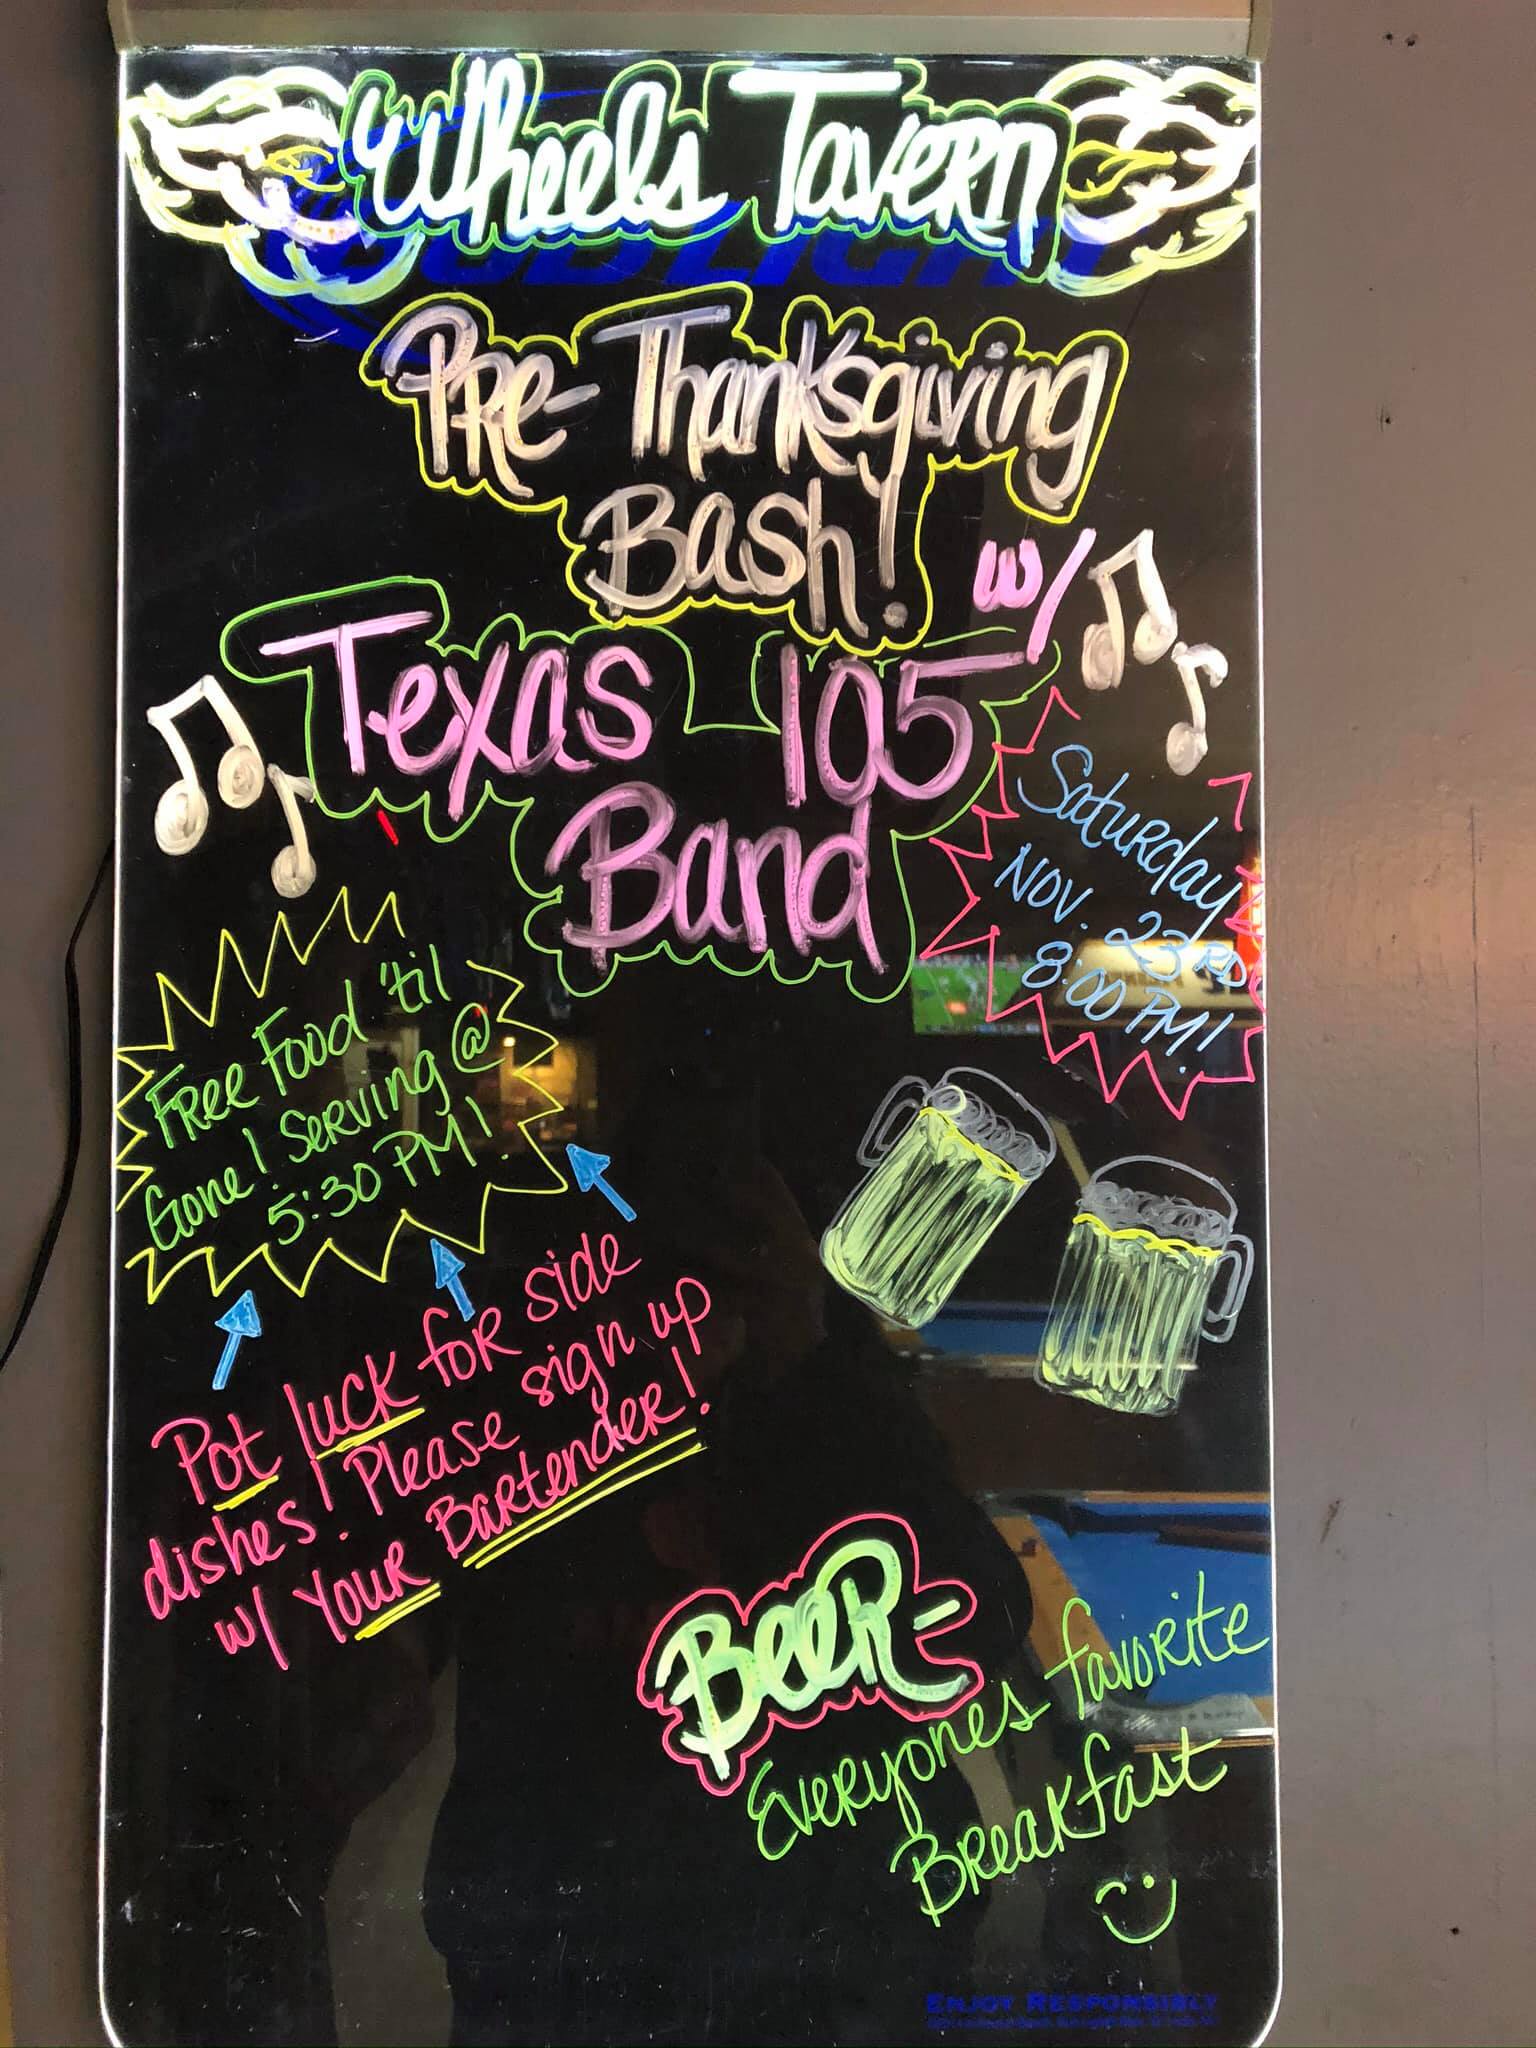 Wheels Tavern
BUD LIGHT
Pre-Thanksgiving
Bash!
w/
Texas 105
Band
Saturday
Nov. 23RD
8:00 PM!
Free Food 'til
Gone! Serving @
5:30 PM!
Pot luck for side
dishes! Please sign up
w/ Your Bartender!
Beer-
Everyones favorite
Breakfast
Enjoy Responsibly